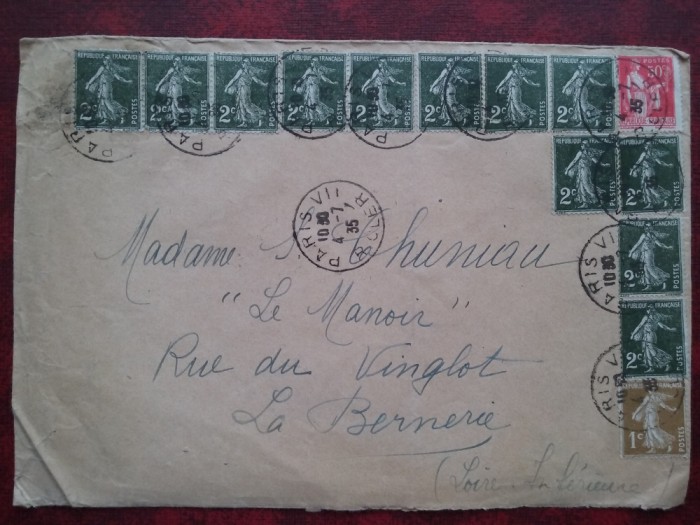 REPUBLIQUE FRANÇAISE REPUBLIQUE FRANÇAISE REPUBLIQUE FRANÇAISE REPUBLIQUE FRANÇAISE REPUBLIQUE FRANÇAISE REPUBLIQUE FRANÇAISE REPUBLIQUE FRANÇAISE REPUBLIQUE FRANÇAISE POSTES
2c 2c 2c 2c 2c 2c 2c 2c POSTES 50c
2c POSTES 2c POSTES
PARIS VII
10 30
4 -7
35
Madame
"Le Manoir"
Rue du Vinglot
La Bernerie
(Loire Inférieure)
2c POSTES
2c POSTES
1c POSTES